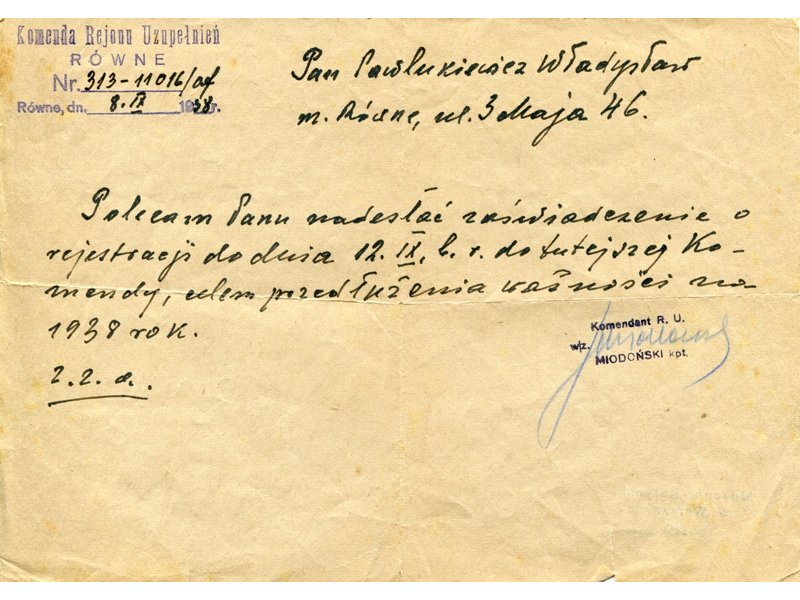 Komenda Rejonu Uzupełnień
RÓWNE
Nr. 313-11016/
Równe, dn. 8.IX 1938 r.
Pan Pawlukiewicz Władysław
m. Równe, ul. 3 Maja 46.
Polecam Panu nadesłać zaświadczenie o
rejestracji do dnia 12.IX, b.r. do tutejszej Ko-
mendy, celem przedłużenia ważności na
1938 rok.
Komendant R. U.
w/z.
MIODOŃSKI kpt.